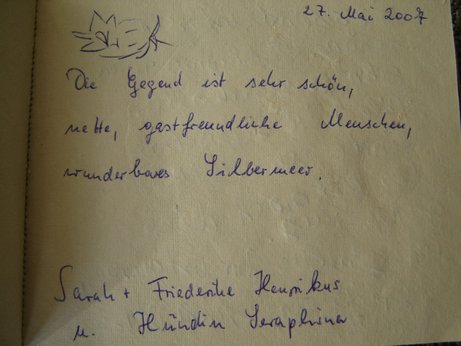 27. Mai 2007
Die Gegend ist sehr schön,
nette, gastfreundliche Menschen,
wunderbares Silbermeer.
Sarah + Friederike Henrikus
u. Hündin Seraphina